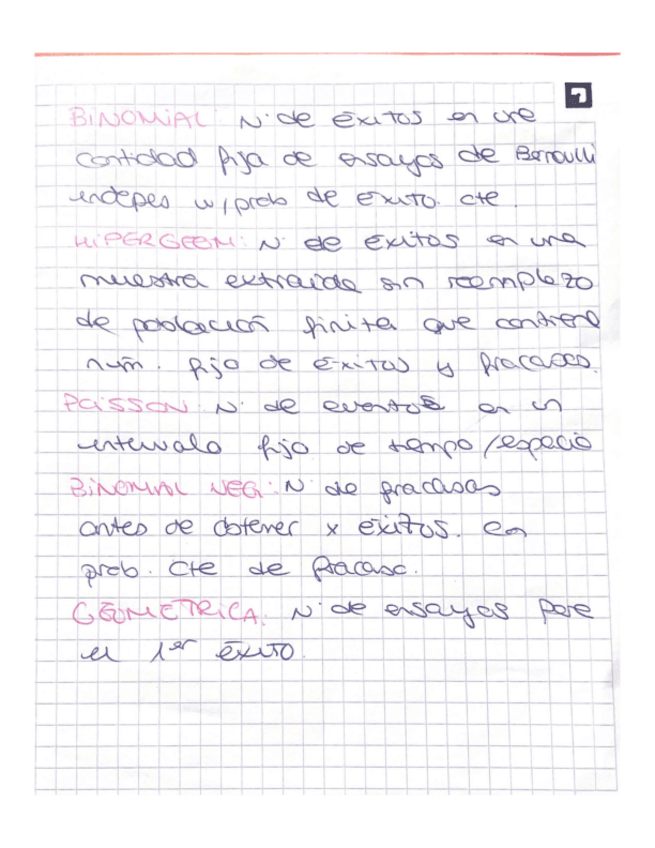 BINOMIAL: Nº de éxitos en una
cantidad fija de ensayos de Bernoulli
indepes w/prob de éxito cte.
HIPERGEOM: Nº de éxitos en una
muestra extraída sin reemplazo
de población finita que contiene
núm. fijo de éxitos y fracasos.
POISSON: Nº de eventos en un
intervalo fijo de tiempo/espacio
BINOMIAL NEG: Nº de fracasos
antes de obtener x éxitos. con
prob. cte de fracaso.
GEOMETRICA: Nº de ensayos para
el 1er éxito.